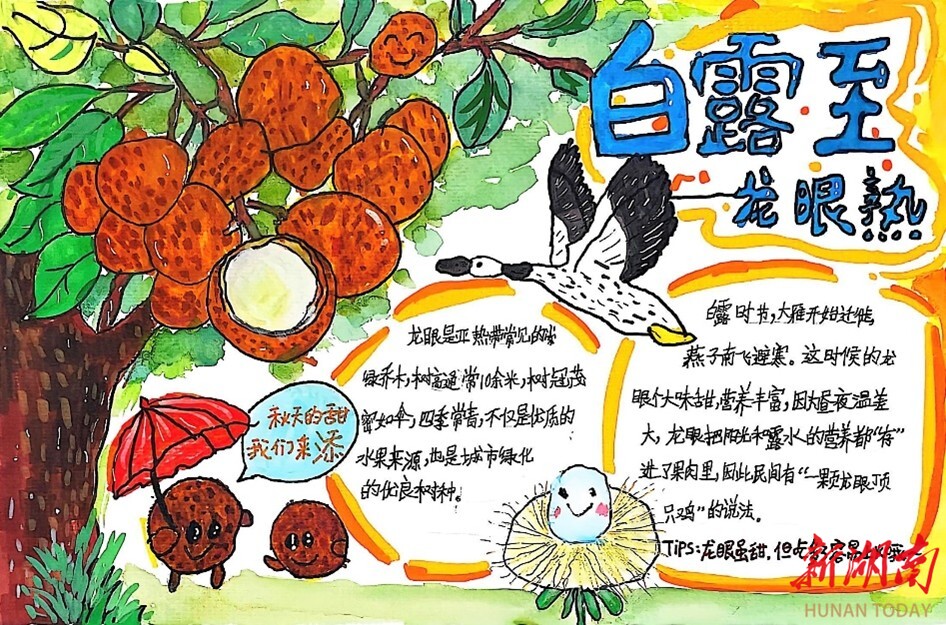 白露至
龙眼熟
秋天的甜
我们来添
龙眼是亚热带常见的
绿乔木,树高通常10余米,树冠茂
密如伞,四季常青,不仅是优质的
水果来源,也是城市绿化
的优良树种。
白露时节,大雁开始迁徙,
燕子南飞避寒。这时候的龙
眼个大味甜,营养丰富,因为昼夜温差
大,龙眼把阳光和露水的营养都“存”
进了果肉里,因此民间有“一颗龙眼顶
只鸡”的说法。
Tips:龙眼虽甜,但吃多了容易上火
新湖南
HUNAN TODAY